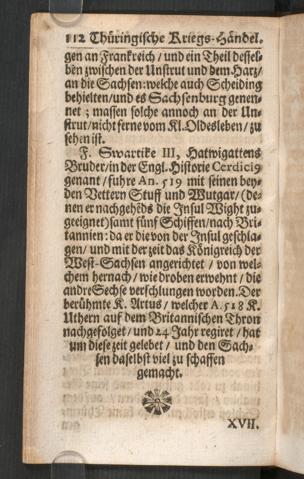 112 Thüringische Kriegs-Händel.
gen an Franckreich / und ein Theil dessel-
ben zwischen der Unstrut und dem Hartz/
an die Sachsen: welche auch Scheiding
behielten/und es Sachsenburg genen-
net ; massen solche annoch an der Un-
strut/nicht ferne vom Kl. Oldesleben / zu
sehen ist.
F. Swartike III, Hatwigattens
Bruder/in der Engl. Historie Cerdicig
genant / fuhre An. 519 mit seinen bey-
den Vettern Stuff und Wutgar/ (de-
nen er nachgehẽds die Insul Wight zu-
geeignet) samt fünf Schiffen/nach Bri-
tannien: da er die von der Insul geschla-
gen / und mit der zeit das Königreich der
West-Sachsen angerichtet / von wel-
chem hernach / wie droben erwehnt / die
andre Sechse verschlungen worden. Der
berühmte K. Artus / welcher A. 518 K.
Uthern auf dem Britannischen Thron
nachgefolget / und 24 Jahr regiret / hat
um diese zeit gelebet / und den Sach-
sen daselbst viel zu schaffen
gemacht.
XVII.